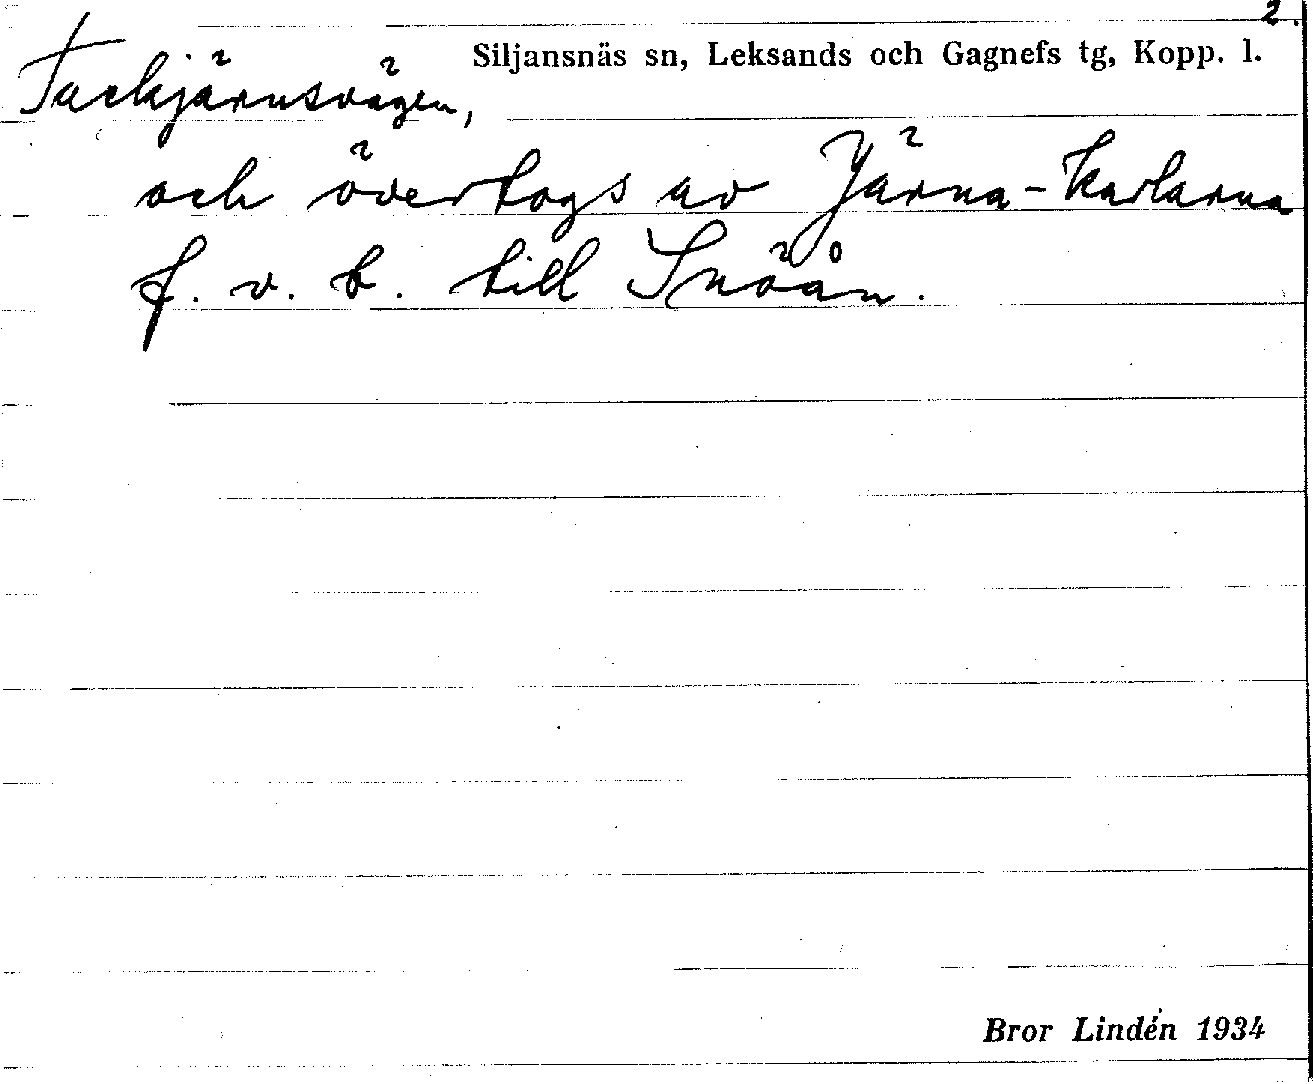 2.
Siljansnäs sn, Leksands och Gagnefs tg, Kopp. l.
Tackjärnsvägen,
och övertogs av Järna-karlarna
f. v. b. till Snöån.
Bror Lindén 1934